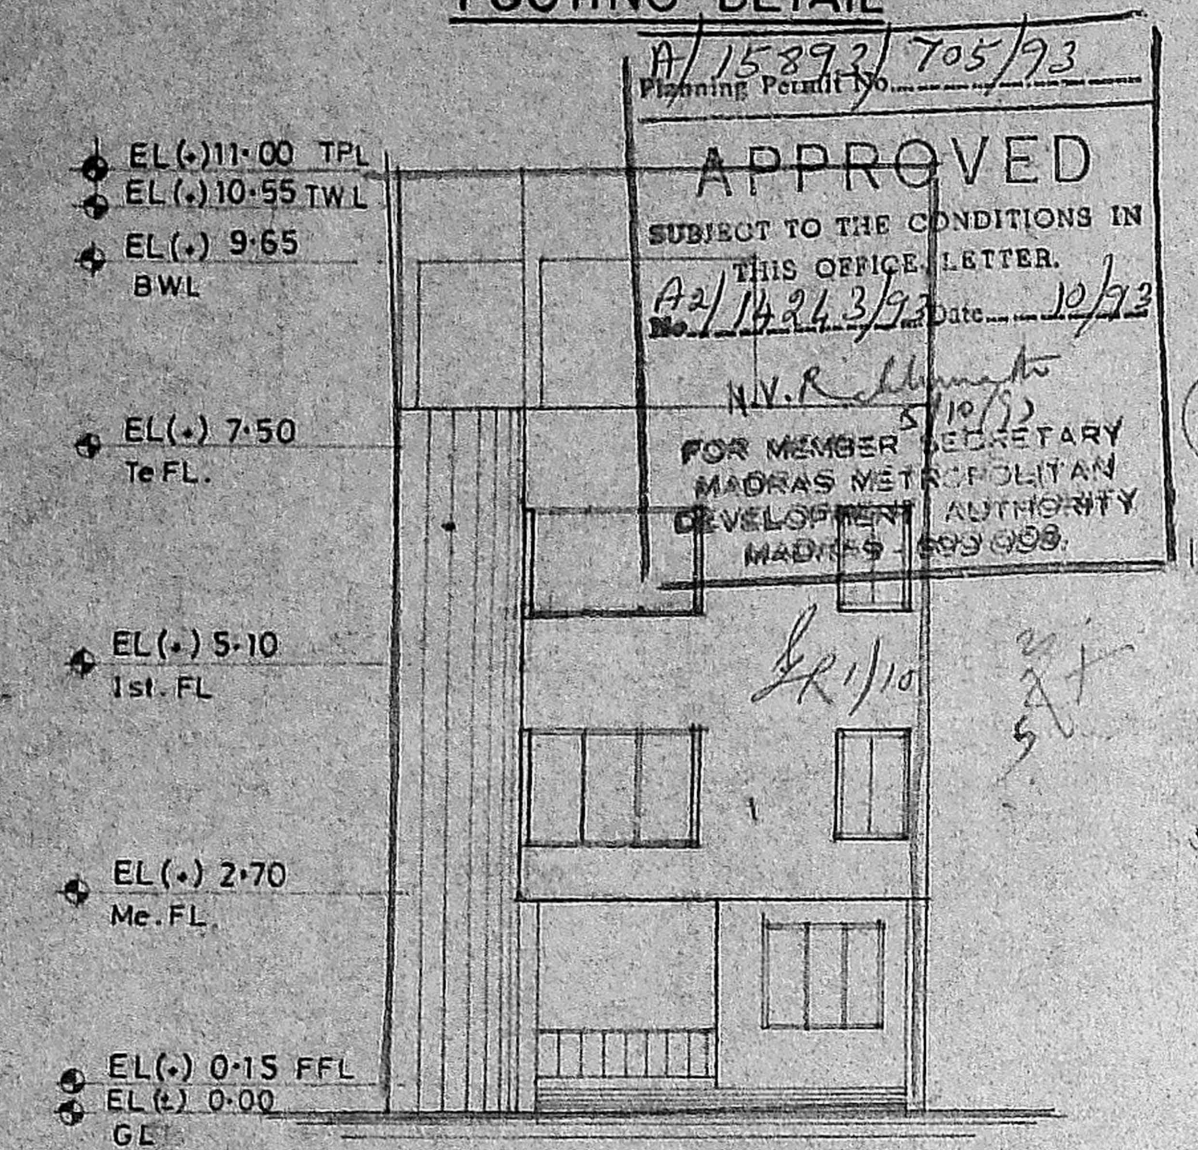 FOOTING DETAIL
A/15893/705/93
Planning Permit No.
APPROVED
SUBJECT TO THE CONDITIONS IN
THIS OFFICE LETTER.
No. A2/14243/93 Date 10/93
N.V.R
5/10/93
FOR MEMBER SECRETARY
MADRAS METROPOLITAN
DEVELOPMENT AUTHORITY
MADRAS - 600 008.
EL(+)11·00 TPL
EL(+)10·55 TWL
EL(+) 9·65
BWL
EL(+) 7·50
Te FL.
EL(+) 5·10
1st. FL
1/10
EL(+) 2·70
Me. FL.
EL(+) 0·15 FFL
EL(±) 0·00
GL